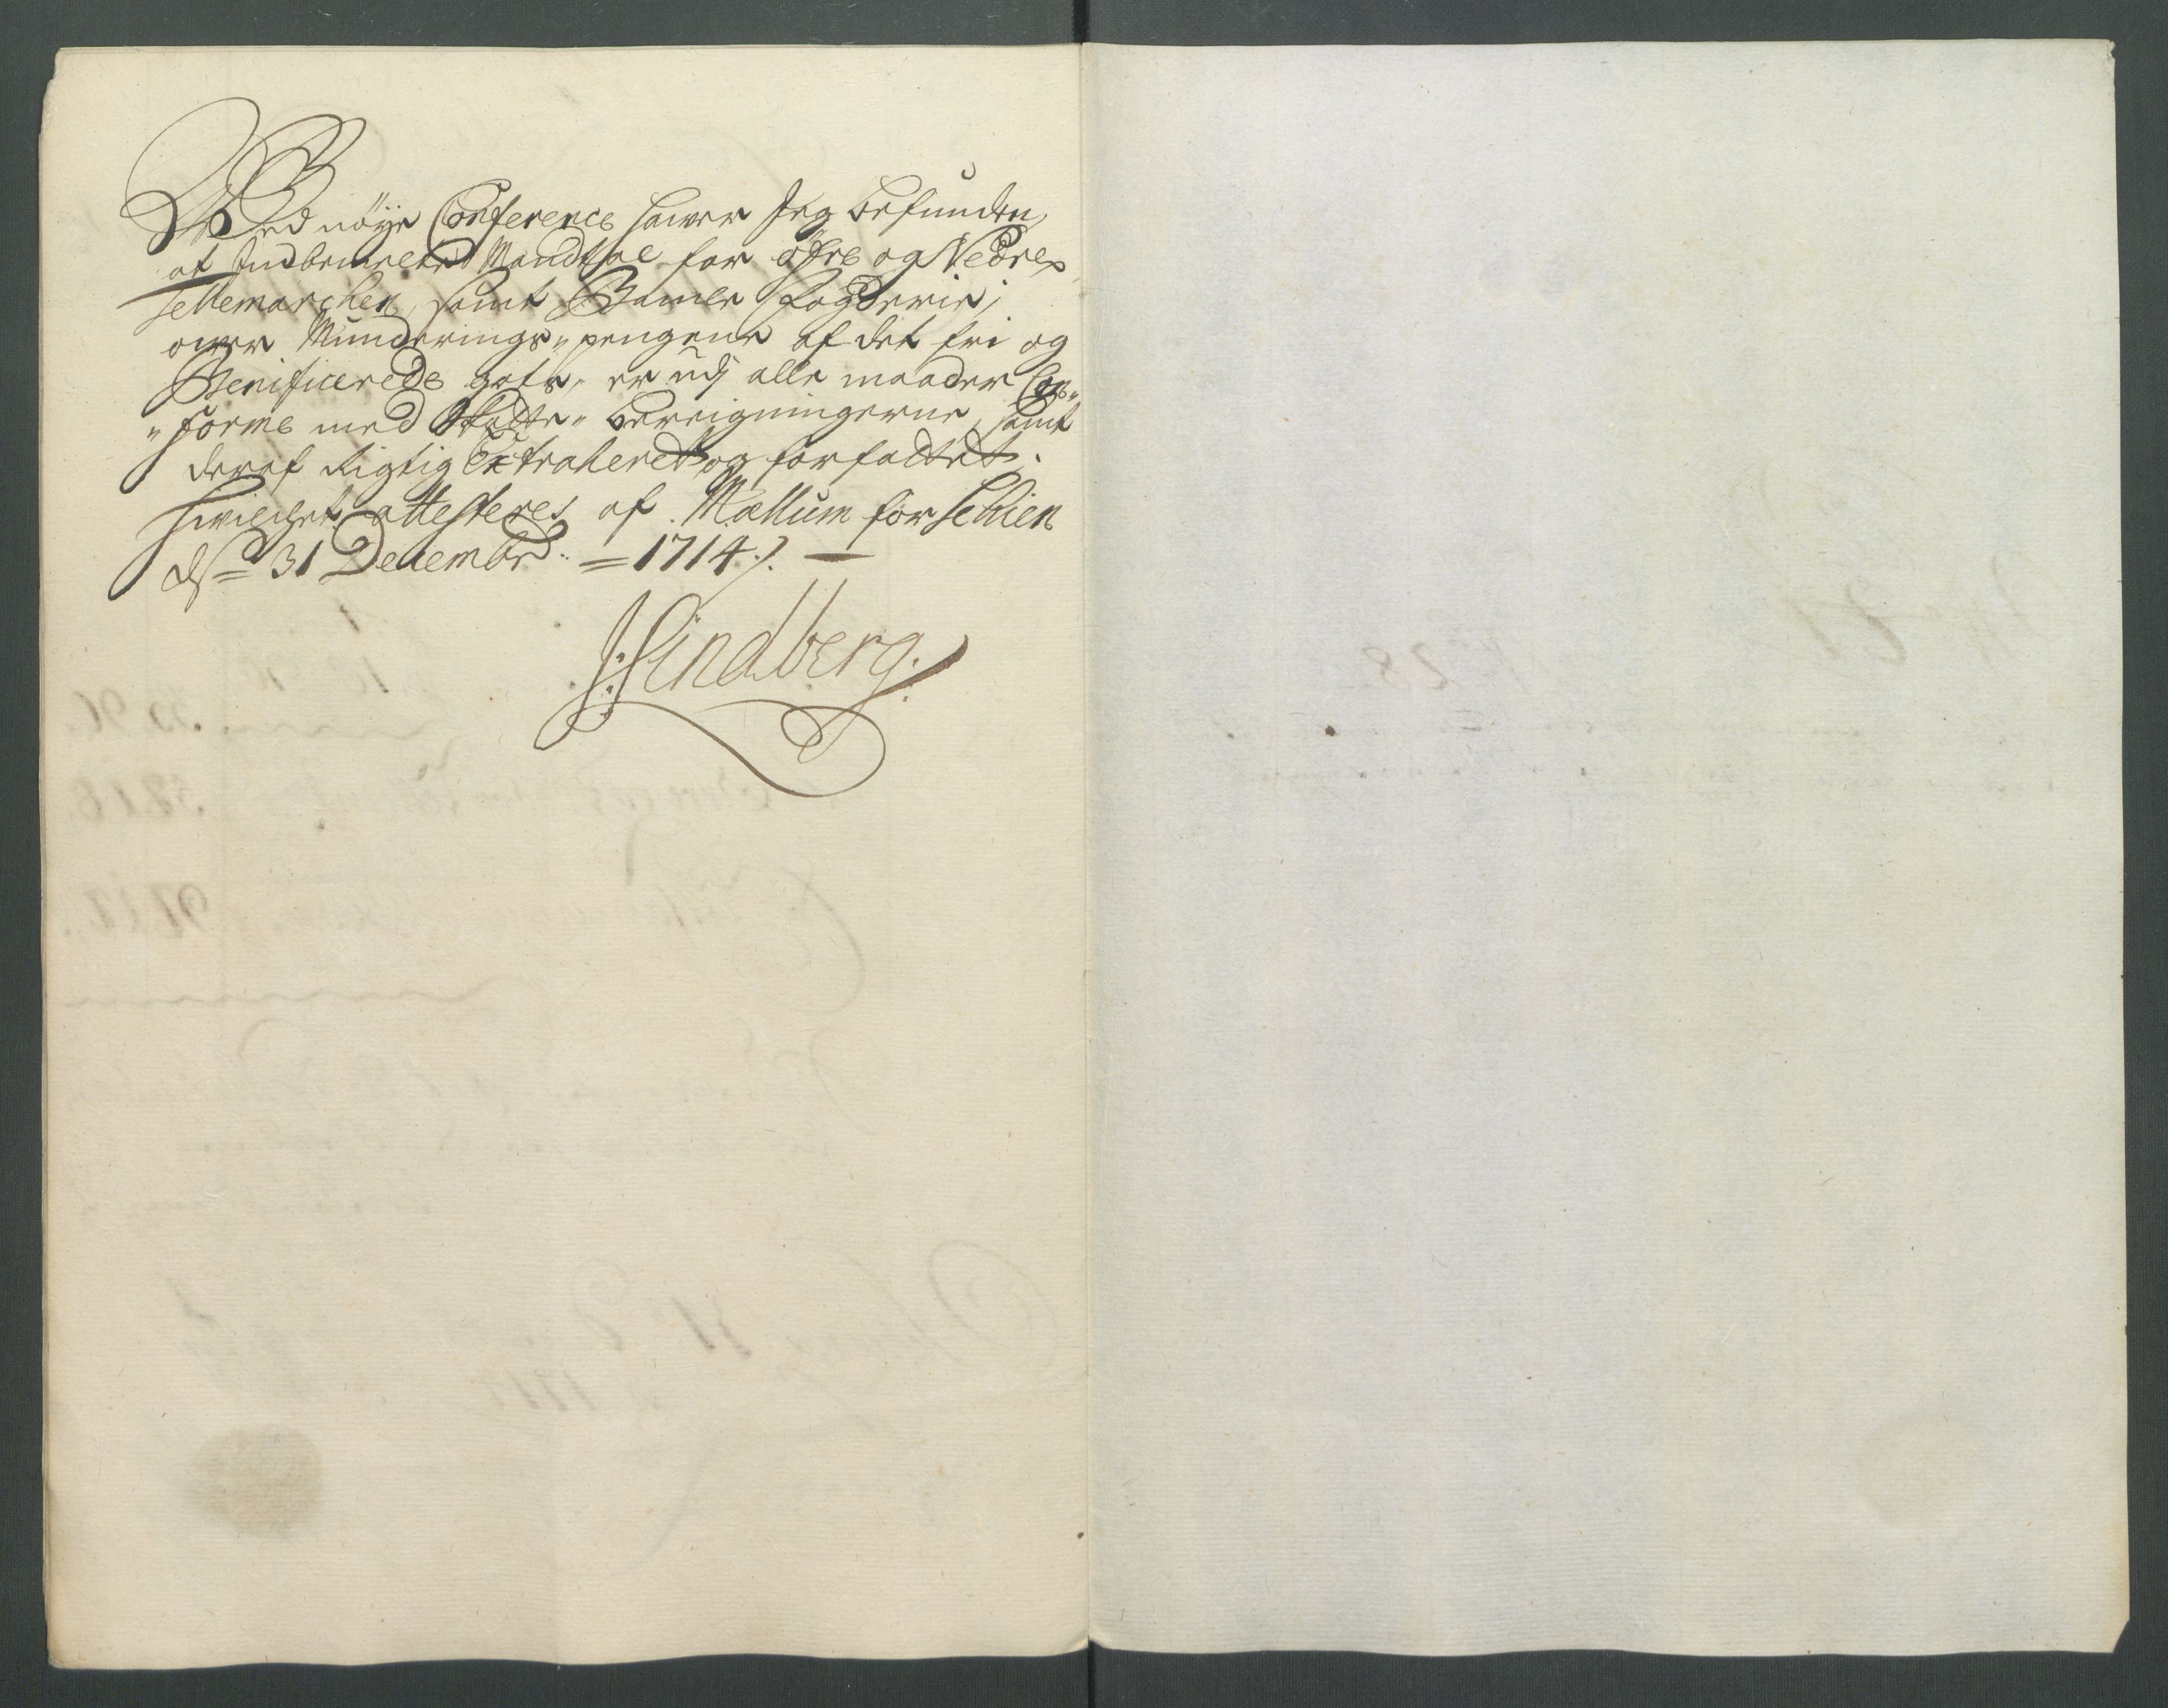 Ved nöye Conference hawer Jeg befunden,
at Indbemelte Mandthal for öfre og Nedre
Tellemarchen, samt Bamle Fogderie;
ower Munderings-pengene af det fri og
Benificerede gods, er udj alle maader Con-
-forme med Skatte-bereigningerne, samt
deraf Rigtig Extraheret og forfattet.
Hwilchet attesteres af Mællum for Schien
d. 31 Decembr: = 1714 ./. —
J: Lindberg.
28